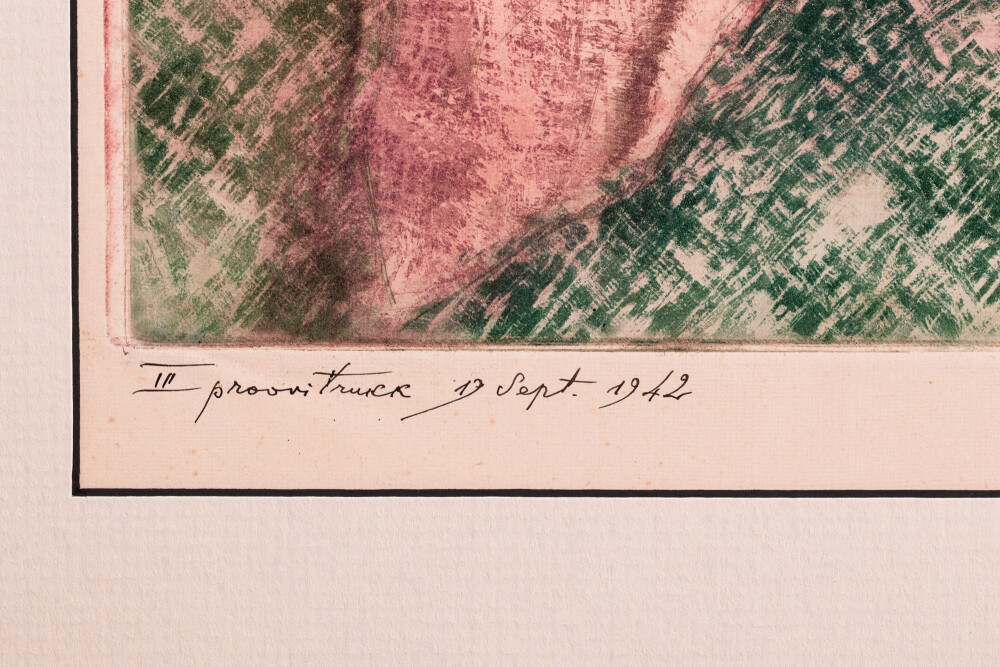 III proovitrukk 17 Sept. 1942